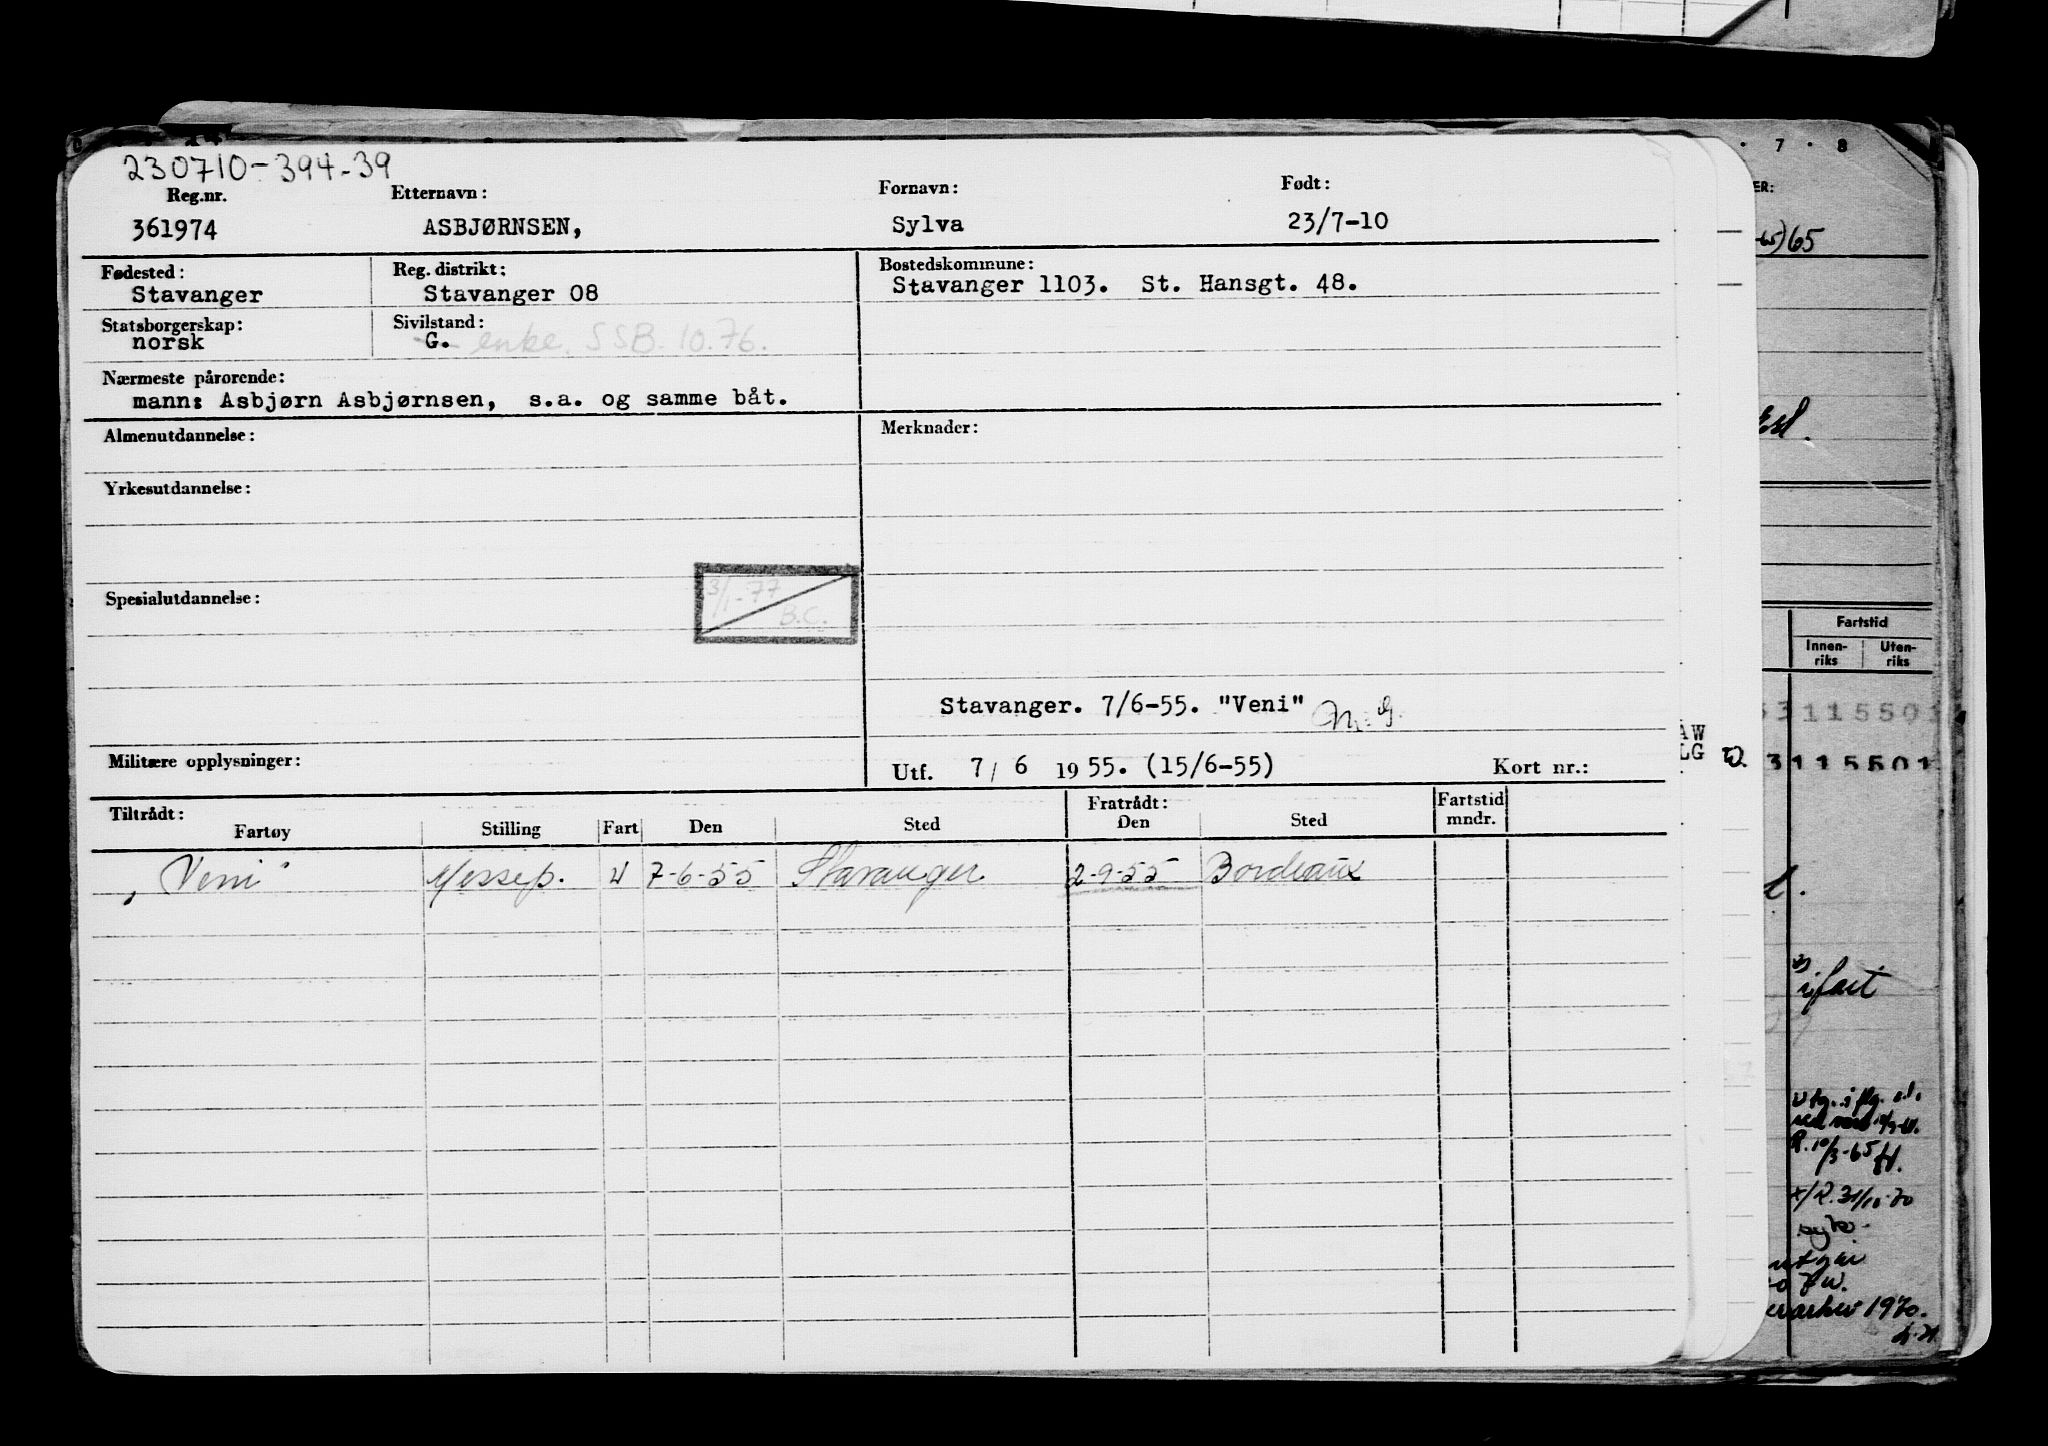 230710-394-39
Reg.nr. Etternavn: Fornavn: Født:
361974 ASBJØRNSEN, Sylva 23/7-10
Fødested: Reg. distrikt: Bostedskommune:
Stavanger Stavanger 08 Stavanger 1103. St. Hansgt. 48.
Statsborgerskap: Sivilstand:
norsk G. enke. SSB. 10.76.
Nærmeste pårørende:
mann: Asbjørn Asbjørnsen, s.a. og samme båt.
Almenutdannelse: Merknader:
Yrkesutdannelse:
3/1-77
Spesialutdannelse: B.C.
Stavanger. 7/6-55. "Veni" M.G.
Militære opplysninger: Utf. 7/ 6 1955. (15/6-55) Kort nr.:
Tiltrådt: Fratrådt: Fartstid
Fartøy Stilling Fart Den Sted Den Sted mndr.
"Veni" Messep. U 7-6-55 Stavanger 2-9-55 Bordeaux
7 8
ER:
-65)65
Fartstid
Innen-riks Uten-riks
311550
AW
LG
3115501
i fart
R. 10/3-65
R. 31/10-70
1970.